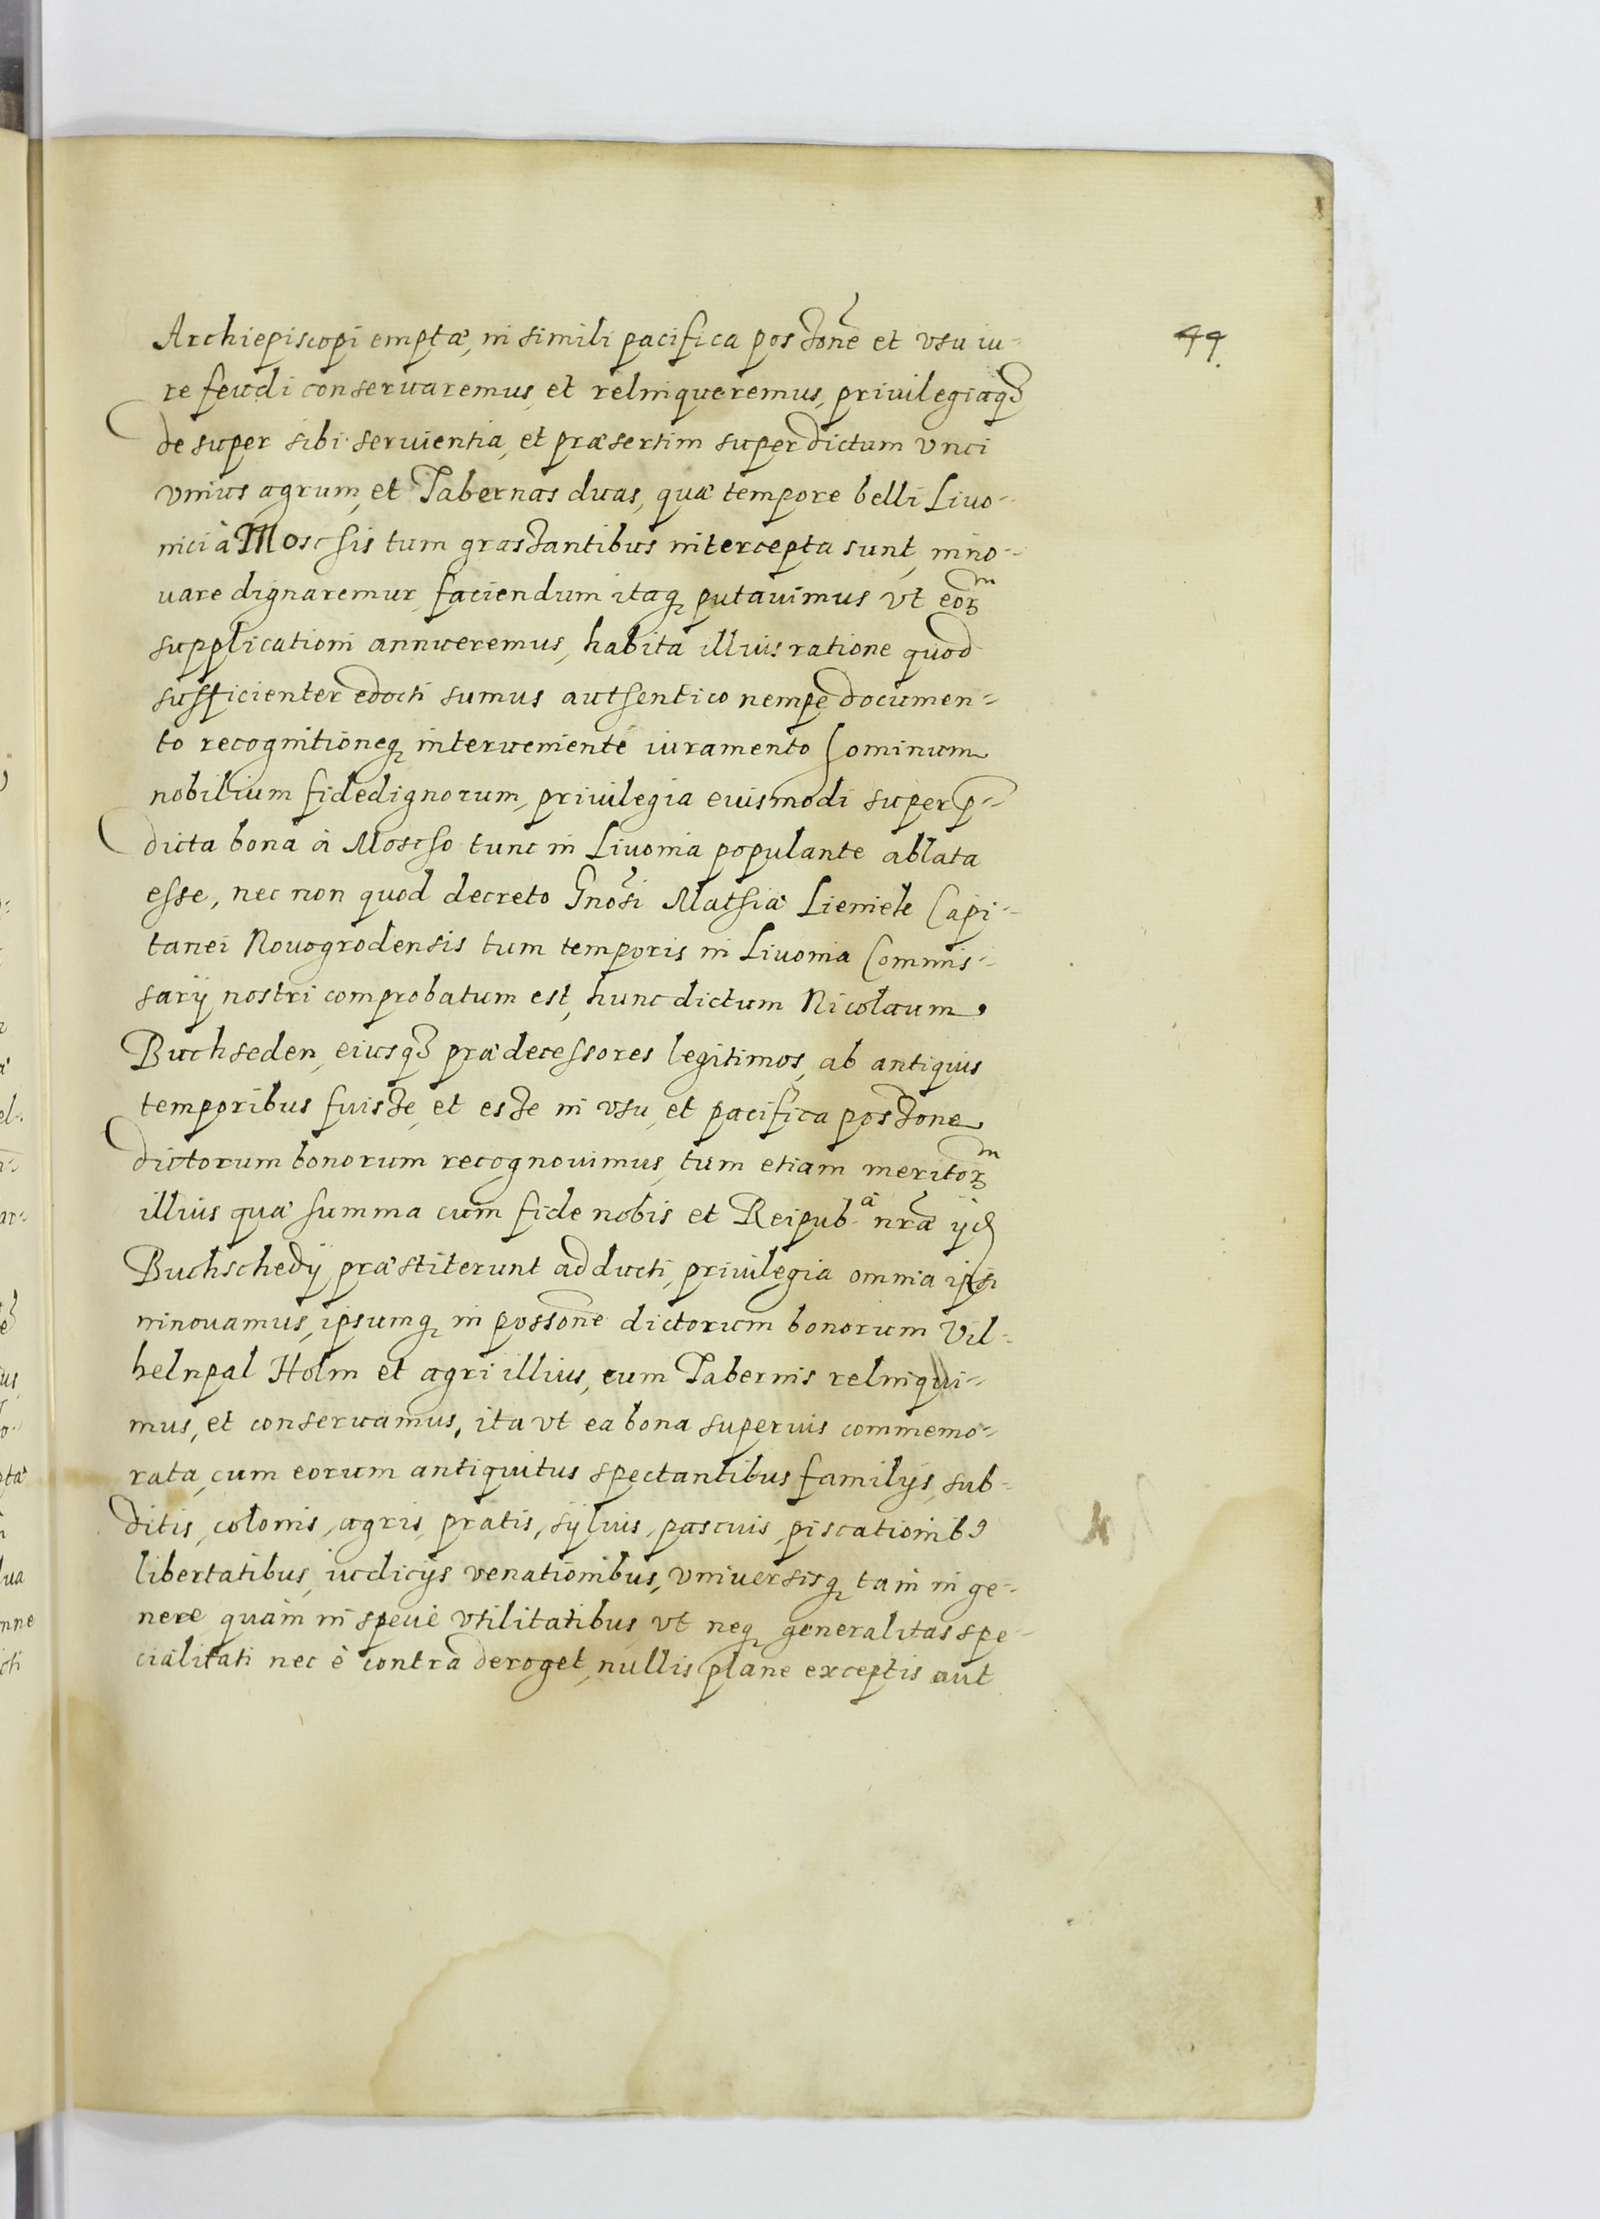 Archiepiscopi emptæ, in simili pacifica possone et vsu iu-
44.
re feudi conseruaremus, et relinqueremus, priuilegiaqȝ
de super sibi seruientia, et præsertim super dictum vnci
vnius agrum, et Tabernas duas, quæ tempore belli Liuo-
nici à Moschis tum grassantibus intercepta sunt, inno-
uare dignaremur, faciendum itaqȝ putauimus vt eorm
supplicationi annueremus, habita illius ratione quod
sufficienter edocti sumus authentico nempe documen-
to recognitioneqȝ interueniente iuramento hominum
nobilium fidedignorum, priuilegia euismodi super p-
dicta bona à Moscho tunc in Liuonia populante ablata
esse, nec non quod decreto Gnosi Mathiæ Lieniek Capi-
tanei Nouogrodensis tum temporis in Liuonia Commis-
sarij nostri comprobatum est, hunc dictum Nicolaum
Buchseden, eiusqȝ prædecessores legitimos, ab antiquis
temporibus fuisse, et esse in vsu, et pacifica possone
dictorum bonorum recognouimus, tum etiam meritorm
illius quæ summa cum fide nobis et Reipub.æ nræ ijd
Buchschedij præstiterunt adducti, priuilegia omnia ipsi
ninouamus, ipsumqȝ in possone dictorum bonorum Vil-
helnpal Holm et agri illius, cum Tabernis relinqui-
mus, et conseruamus, ita vt ea bona superius commemo-
rata, cum eorum antiquitus spectantibus familijs, sub-
ditis, colonis, agris, pratis, syluis, pascuis, piscationibꝰ
libertatibus, iudicijs venationibus, vniuersisqȝ tam in ge-
nere quàm in speciè vtilitatibus, vt neqȝ generalitas spe-
cialitati nec è contra deroget, nullis plane exceptis aut